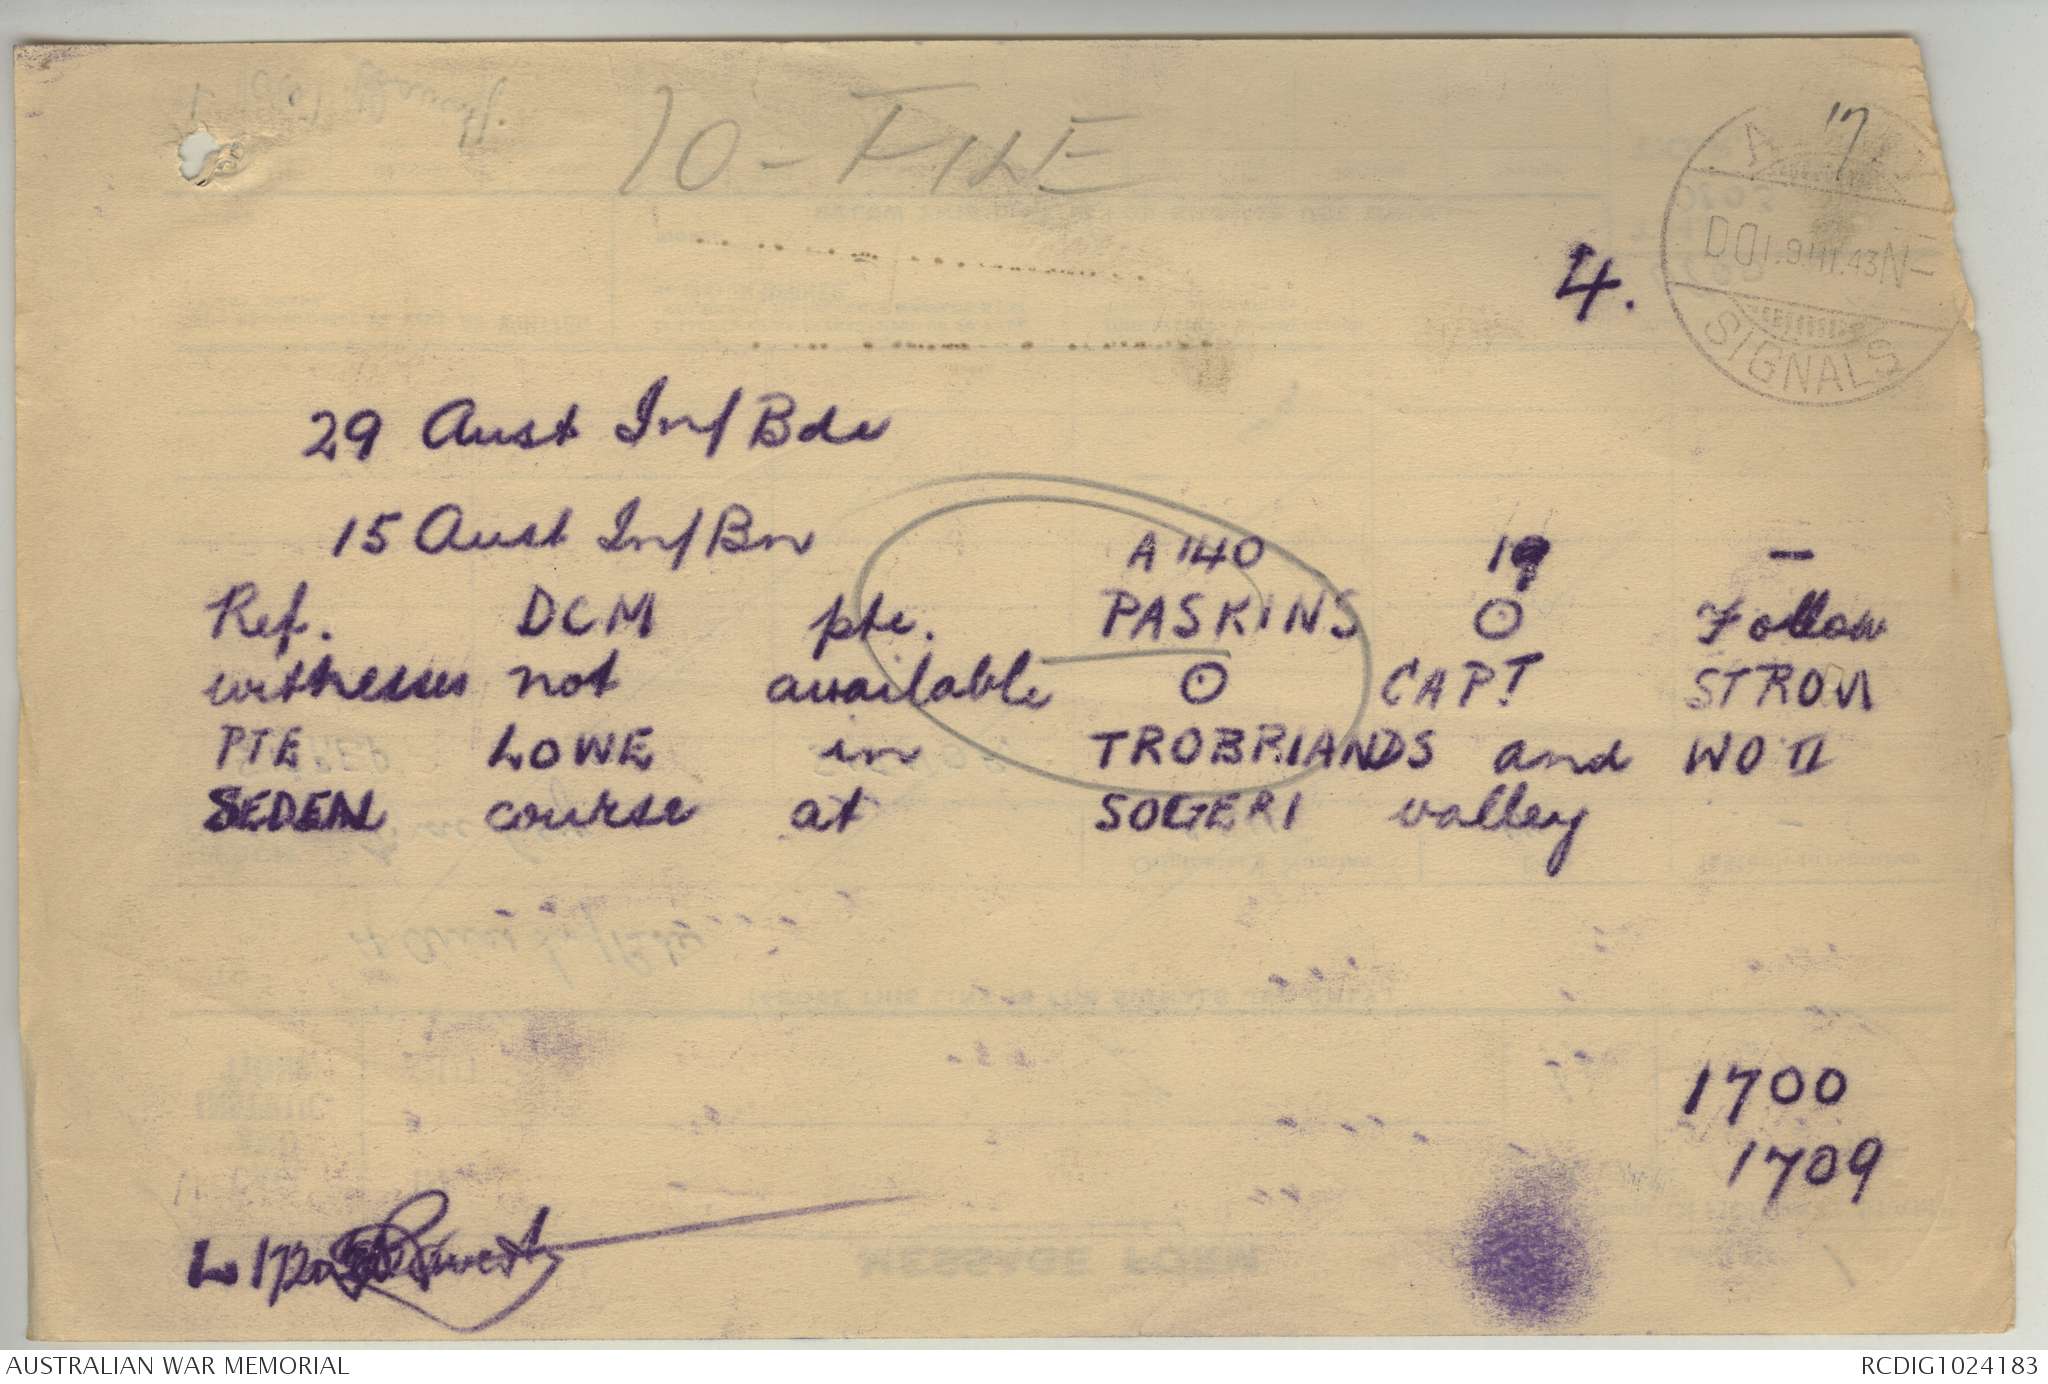 10 - FILE
17
DO 1.9 III.43 N
SIGNALS
4.
29 Aust Inf Bde
15 Aust Inf Bn A 140 19 -
Ref. DCM pte. PASKINS ⊙ Follow
witnesses not available ⊙ CAPT STROM
PTE LOWE in TROBRIANDS and WO II
SEDEN course at SOGERI valley
1700
1709
MESSAGE FORM
AUSTRALIAN WAR MEMORIAL
RCDIG1024183